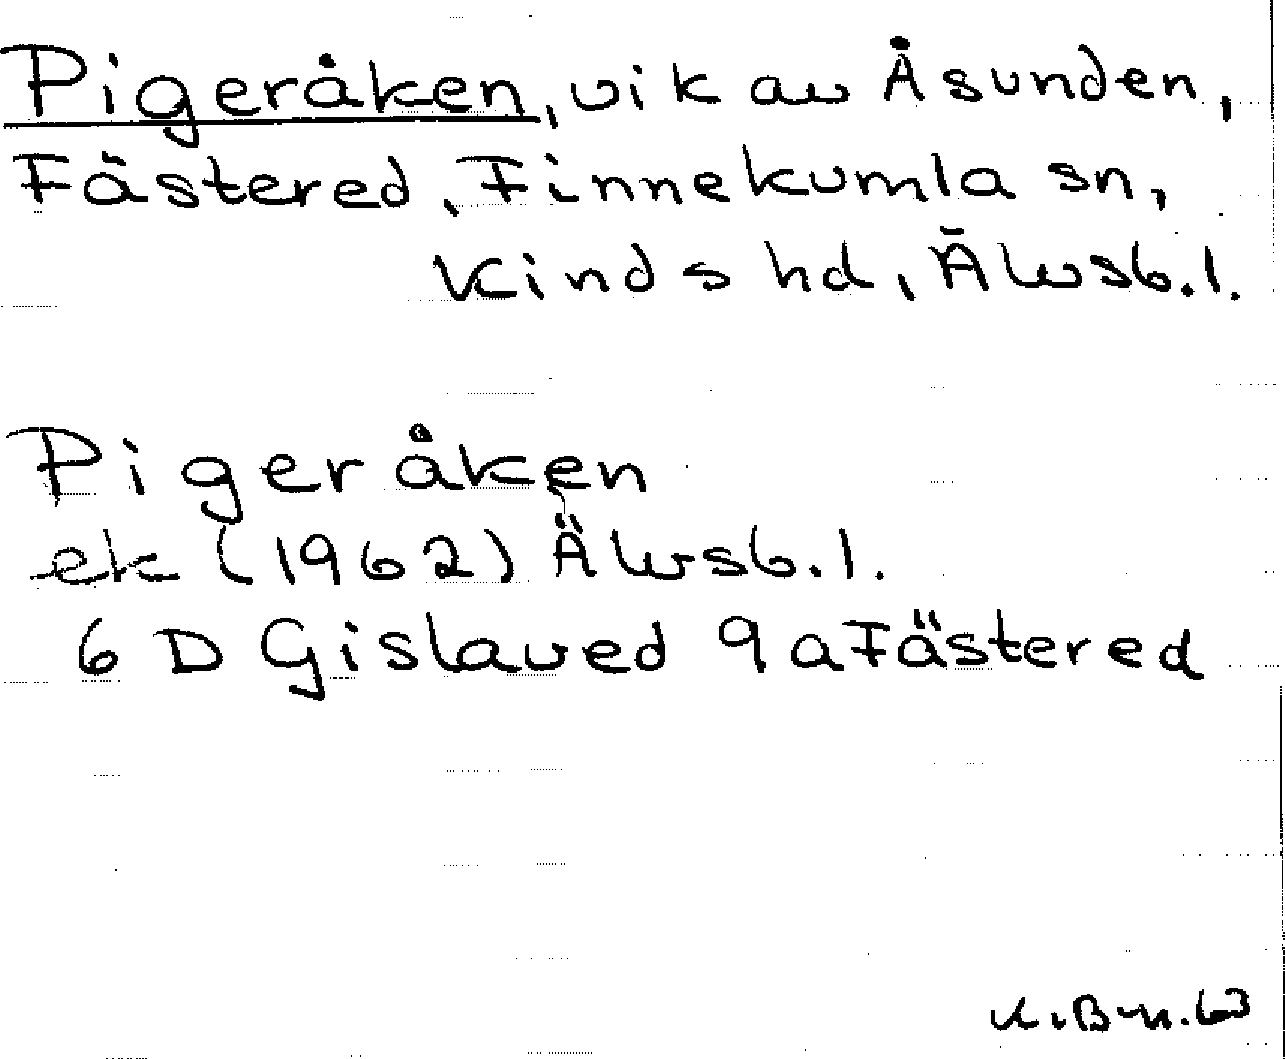 Pigeråken, vik av Åsunden,
Fästered, Finnekumla sn,
Kinds hd, Älvsb.l.
Pigeråken
ek (1962) Älvsb.l.
6 D Gislaved 9 a Fästered